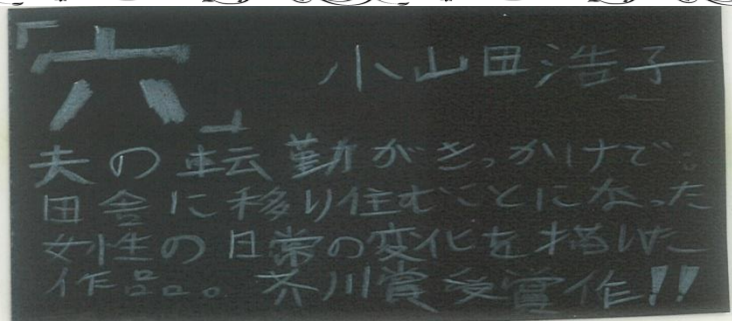 「穴」 小山田浩子
夫の転勤がきっかけで、
田舎に移り住むことになった
女性の日常の変化を描いた
作品。。芥川賞受賞作!!